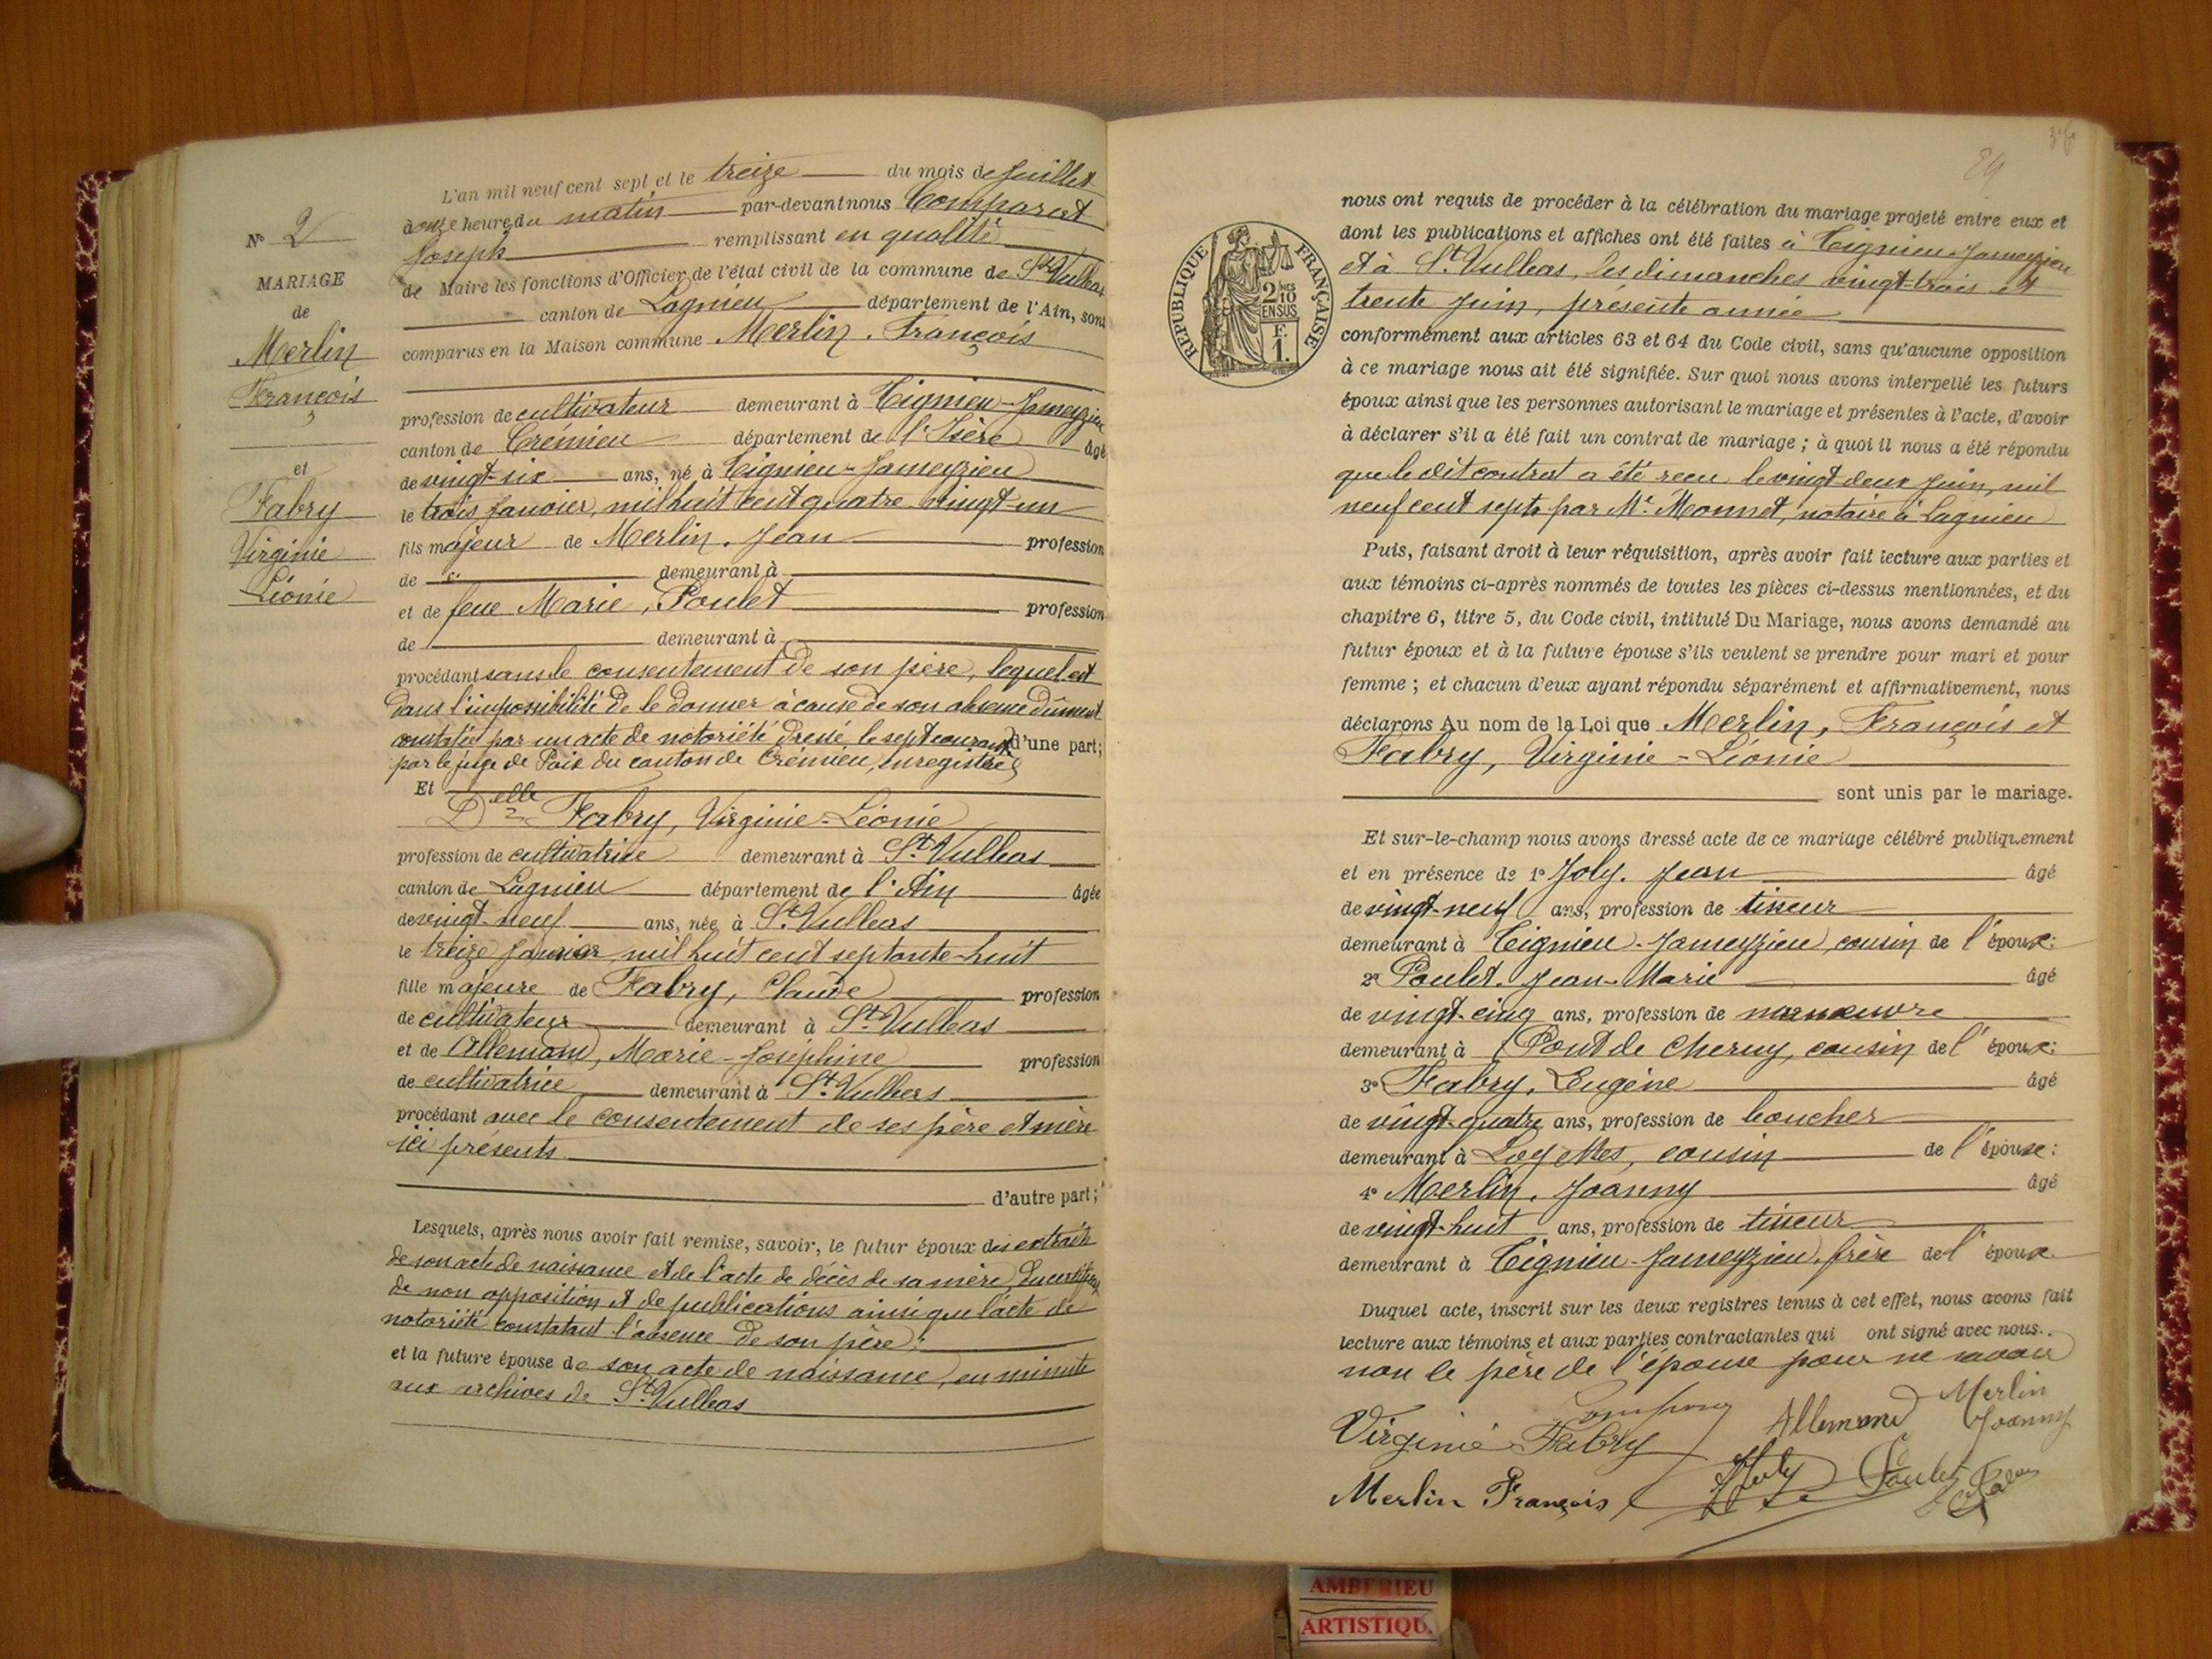 N° 2
MARIAGE
de
Merlin
François
et
Fabry
Virginie
Léonie
L'an mil neuf cent sept et le treize du mois de Juillet
à onze heures du matin par-devant nous Comparat
Joseph remplissant en qualité
de Maire les fonctions d'Officier de l'état civil de la commune de St Vulbas
canton de Lagnieu département de l'Ain, sont
comparus en la Maison commune Merlin, François
profession de cultivateur demeurant à Tignieu-Jameyzieu
canton de Crémieu département de l'Isère âgé
de vingt-six ans, né à Tignieu-Jameyzieu
le trois Janvier, mil huit cent quatre-vingt-un
fils majeur de Merlin, Jean profession
de demeurant à
et de feue Marie, Poulet profession
de demeurant à
procédant sans le consentement de son père, lequel est
dans l'impossibilité de le donner à cause de son absence dûment
constatée par un acte de notoriété dressé le sept courant d'une part;
par le juge de Paix du canton de Crémieu, enregistré
Et
Delle Fabry, Virginie-Léonie
profession de cultivatrice demeurant à St Vulbas
canton de Lagnieu département de l'Ain âgée
de vingt-neuf ans, née à St Vulbas
le treize Janvier mil huit cent septante-huit
fille majeure de Fabry, Claude profession
de cultivateur demeurant à St Vulbas
et de Allemand, Marie-Joséphine profession
de cultivatrice demeurant à St Vulbas
procédant avec le consentement de ses père et mère
ici présents
d'autre part;
Lesquels, après nous avoir fait remise, savoir, le futur époux des extraits
de son acte de naissance et de l'acte de décès de sa mère, du certificat
de non opposition et de publications ainsi que l'acte de
notoriété constatant l'absence de son père;
et la future épouse de son acte de naissance, en minute
aux archives de St Vulbas
36
84
RÉPUBLIQUE FRANÇAISE
2/10
EN SUS
F.
1.
nous ont requis de procéder à la célébration du mariage projeté entre eux et
dont les publications et affiches ont été faites à Tignieu-Jameyzieu
et à St Vulbas, les dimanches vingt-trois et
trente Juin, présente année
conformément aux articles 63 et 64 du Code civil, sans qu'aucune opposition
à ce mariage nous ait été signifiée. Sur quoi nous avons interpellé les futurs
époux ainsi que les personnes autorisant le mariage et présentes à l'acte, d'avoir
à déclarer s'il a été fait un contrat de mariage ; à quoi il nous a été répondu
que le dit contrat a été reçu le vingt deux Juin, mil
neuf cent sept, par Me Monnet, notaire à Lagnieu
Puis, faisant droit à leur réquisition, après avoir fait lecture aux parties et
aux témoins ci-après nommés de toutes les pièces ci-dessus mentionnées, et du
chapitre 6, titre 5, du Code civil, intitulé Du Mariage, nous avons demandé au
futur époux et à la future épouse s'ils veulent se prendre pour mari et pour
femme ; et chacun d'eux ayant répondu séparément et affirmativement, nous
déclarons Au nom de la Loi que Merlin, François et
Fabry, Virginie-Léonie
sont unis par le mariage.
Et sur-le-champ nous avons dressé acte de ce mariage célébré publiquement
et en présence de 1° Joly, Jean âgé
de vingt-neuf ans, profession de tisseur
demeurant à Tignieu-Jameyzieu, cousin de l'époux;
2° Poulet, Jean-Marie âgé
de vingt-cinq ans, profession de manœuvre
demeurant à Pont de Cheruy, cousin de l'époux;
3° Fabry, Eugène âgé
de vingt-quatre ans, profession de boucher
demeurant à Loyettes, cousin de l'épouse;
4° Merlin, Joanny âgé
de vingt-huit ans, profession de tisseur
demeurant à Tignieu-Jameyzieu, frère de l'époux.
Duquel acte, inscrit sur les deux registres tenus à cet effet, nous avons fait
lecture aux témoins et aux parties contractantes qui ont signé avec nous.
non le père de l'épouse pour ne savoir
Virginie Fabry Allemand Merlin
Joanny
Merlin François Joly Poulet
AMBERIEU
ARTISTIQU